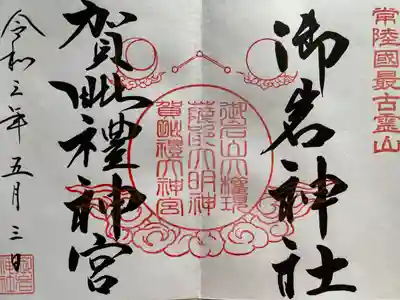 常陸國最古霊山
御岩神社
御岩山大権現
薩都大明神
賀毗禮大神宮
賀毗禮神宮
令和三年五月三日